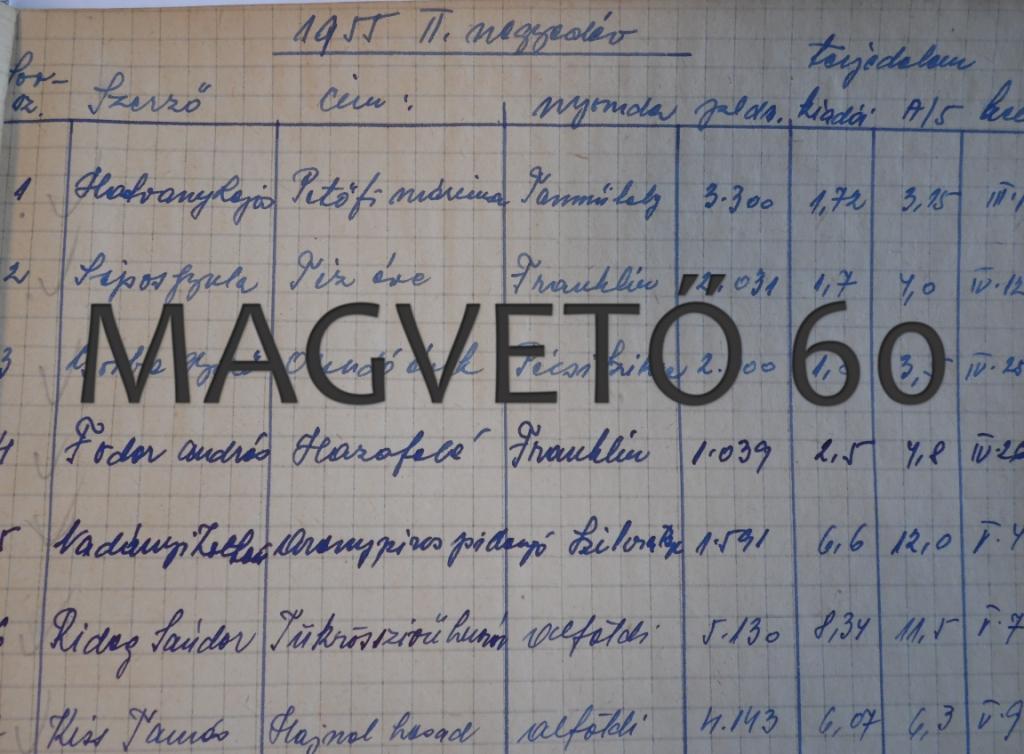 1955 II. negyedév
terjedelem
Sor-
sz. Szerző Cím: nyomda példs. kiadói A/5
1 Hatvany Lajos Petőfi márciusa Tanműhely 3.300 1,72 3,25 III.
2 Sipos Gyula Tíz éve Franklin 2.031 1,7 4,0 IV.12
MAGVETŐ 60
3 2. 00 1, 3, IV.25
4 Fodor András Hazafelé Franklin 1.039 2,5 4,8 IV.2
5 Nadányi Zoltán Aranypiros pillangó 1.591 6,6 12,0 V.4
6 Rideg Sándor Tükrösszívű huszár alföldi 5.130 8,34 11,5 V.7
Kiss Tamás Hajnal hasad alföldi 4.143 6,07 6,3 V.9